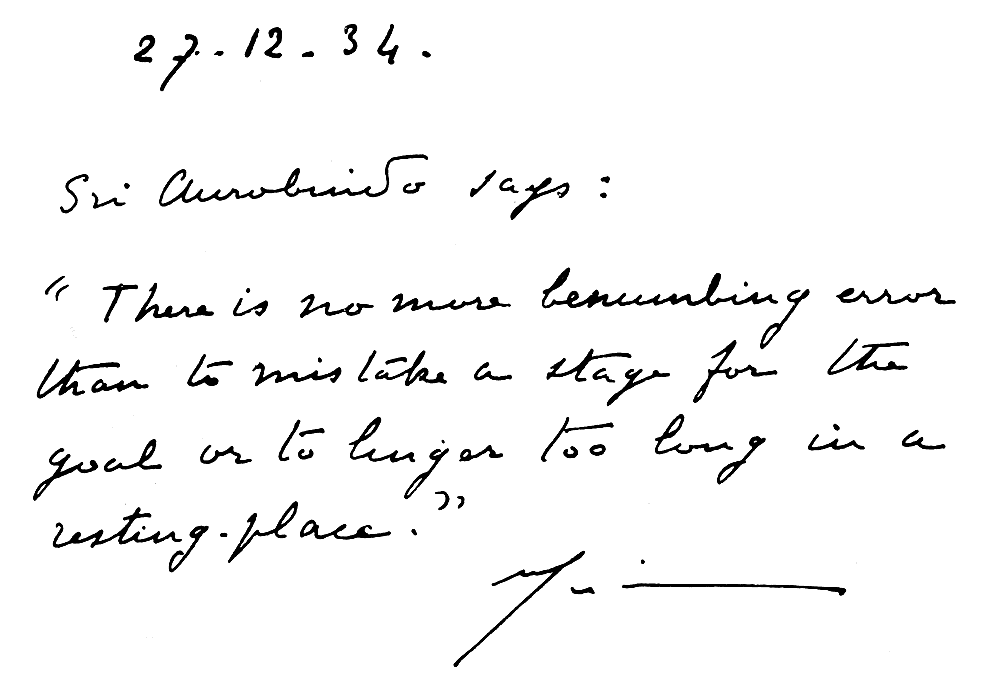 27.12.34.
Sri Aurobindo says:
"There is no more benumbing error
than to mistake a stage for the
goal or to linger too long in a
resting-place."